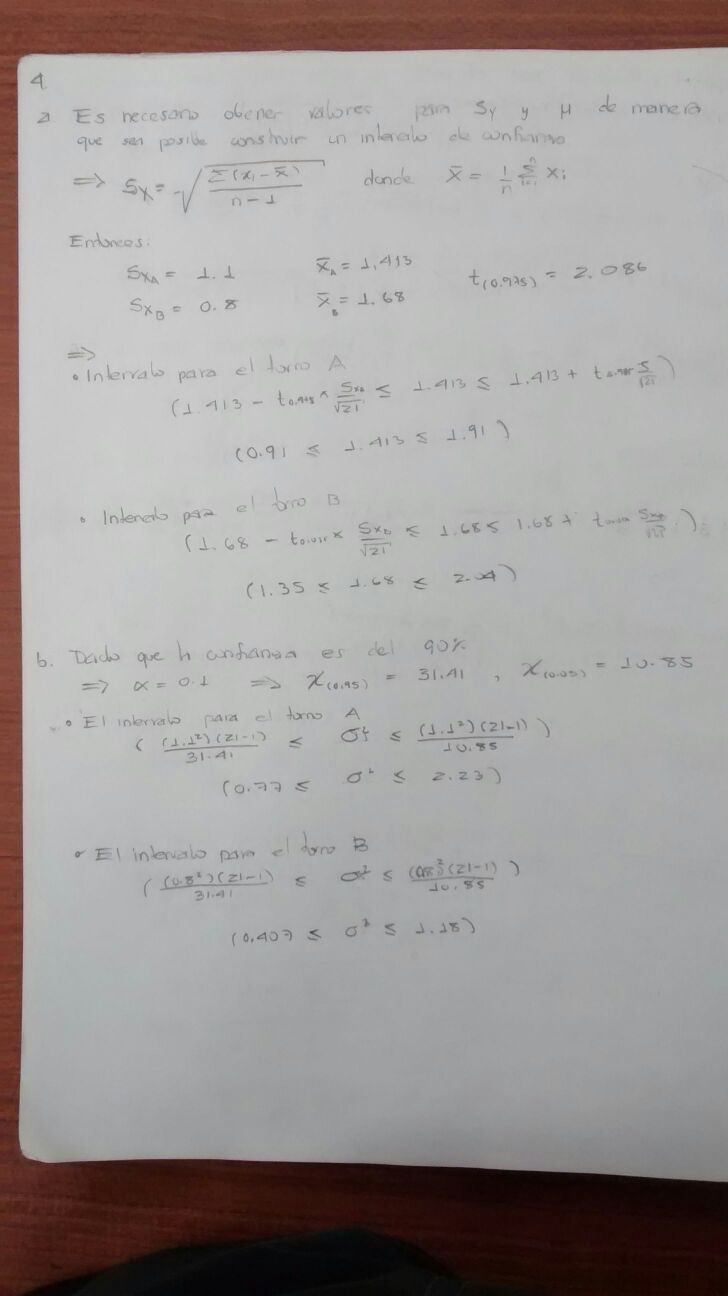 4.
a Es necesario obtener valores para Sy y μ de manera
que sea posible construir un intervalo de confianza
⇒ Sx = √(Σ(xᵢ - x̄) / n - 1) donde x̄ = 1/n Σ xᵢ
Entonces:
Sx_A = 1.1 x̄_A = 1,413 t(0.975) = 2.086
Sx_B = 0.8 x̄_B = 1.68
⇒
• Intervalo para el torno A
(1.413 - t × Sx/√21 ≤ 1.413 ≤ 1.413 + t S/√21)
(0.91 ≤ 1.413 ≤ 1.91)
• Intervalo para el torno B
(1.68 - t × Sx_B/√21 ≤ 1.68 ≤ 1.68 + t Sx/√21)
(1.35 ≤ 1.68 ≤ 2.04)
b. Dado que la confianza es del 90%
⇒ α = 0.1 ⇒ χ(0.95) = 31.41 , χ(0.05) = 10.85
• El intervalo para el torno A
((1.1²)(21-1)/31.41 ≤ σ² ≤ (1.1²)(21-1)/10.85)
(0.77 ≤ σ² ≤ 2.23)
• El intervalo para el torno B
((0.8²)(21-1)/31.41 ≤ σ² ≤ (0.8²)(21-1)/10.85)
(0.407 ≤ σ² ≤ 1.18)